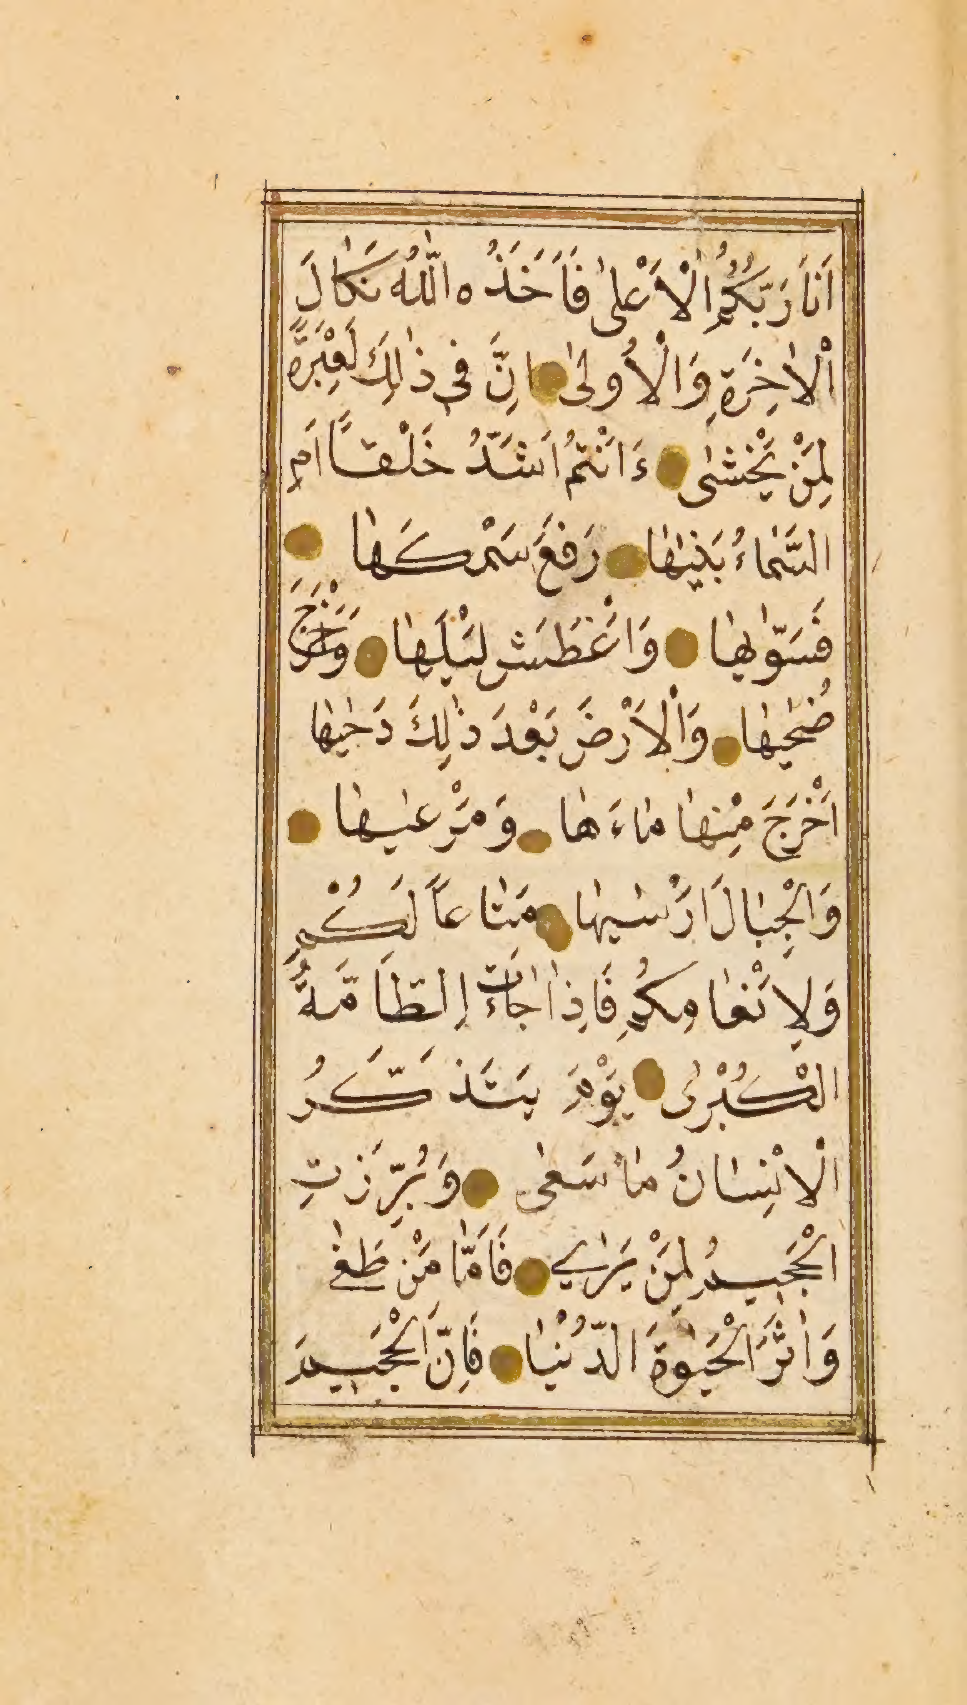 اَنَا رَبُّكُمُ الْاَعْلٰى فَاَخَذَهُ اللّٰهُ نَكَالَ
الْاٰخِرَةِ وَالْاُولٰى اِنَّ فٖى ذٰلِكَ لَعِبْرَةً
لِمَنْ يَخْشٰى ءَاَنْتُمْ اَشَدُّ خَلْقًا اَمِ
السَّمَاءُ بَنٰيهَا رَفَعَ سَمْكَهَا
فَسَوّٰيهَا وَاَغْطَشَ لَيْلَهَا وَاَخْرَجَ
ضُحٰيهَا وَالْاَرْضَ بَعْدَ ذٰلِكَ دَحٰيهَا
اَخْرَجَ مِنْهَا مَاءَهَا وَمَرْعٰيهَا
وَالْجِبَالَ اَرْسٰيهَا مَتَاعاً لَكُمْ
وَلِاَنْعَامِكُمْ فَاِذَا جَاءَتِ الطَّامَّةُ
الْكُبْرٰى يَوْمَ يَتَذَكَّرُ
الْاِنْسَانُ مَا سَعٰى وَبُرِّزَتِ
الْجَحِيمُ لِمَنْ يَرٰى فَاَمَّا مَنْ طَغٰى
وَاٰثَرَ الْحَيٰوةَ الدُّنْيَا فَاِنَّ الْجَحِيمَ